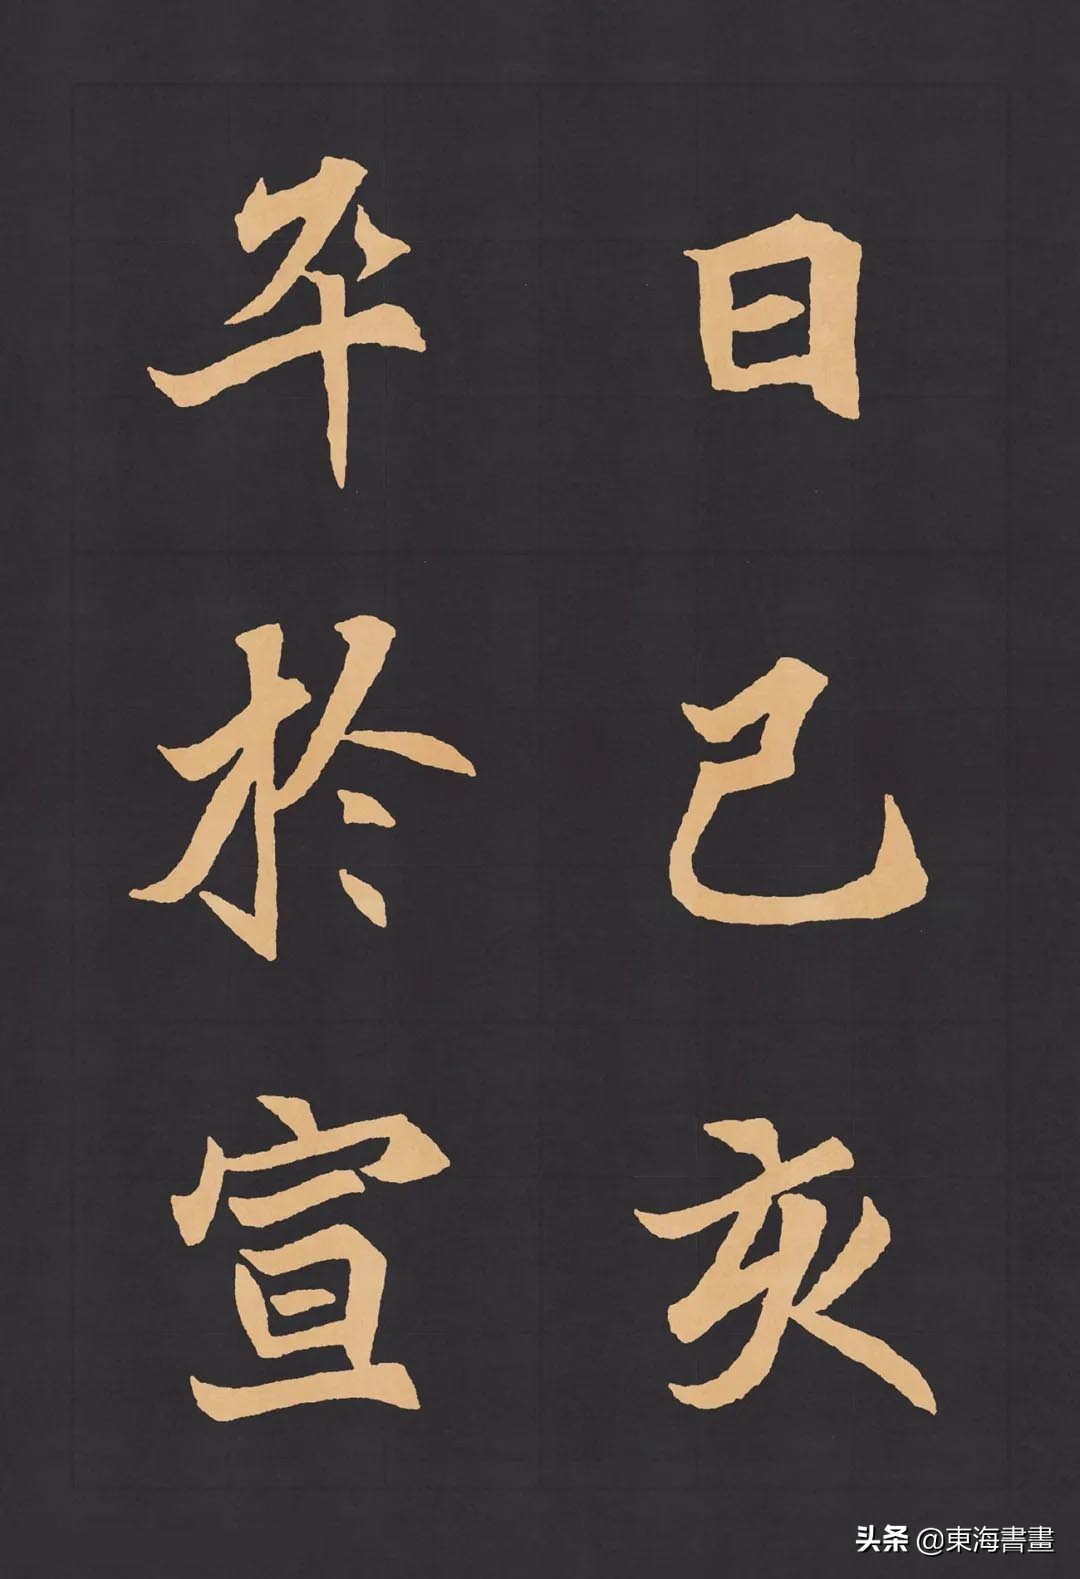 日己亥
卒於宣
头条 @東海書畫